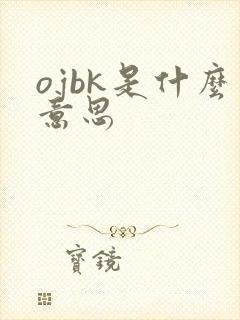 ojbk是什麽
意思
寶鏡